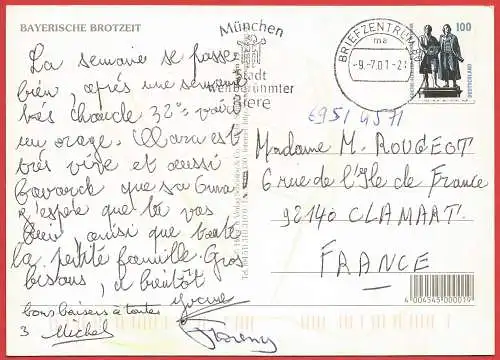 BAYERISCHE BROTZEIT
La semaine se passe
bien, après une semaine
très chaude 32° voici
un orage. Mara est
très vive et aussi
bavarde que sa
J'espère que tu vas
bien ainsi que toute
la petite famille. Gros
bisous, à bientôt
Yvonne
bons baisers à toutes
3 Michel
München
Stadt
weltberühmter
Biere
BRIEFZENTRUM 80
ma
-9.-7.01-2
100
DEUTSCHLAND
6951 4571
Madame M. ROUGEOT
6 rue de l'Ile de France
92140 CLAMART
FRANCE
4 004545 000019